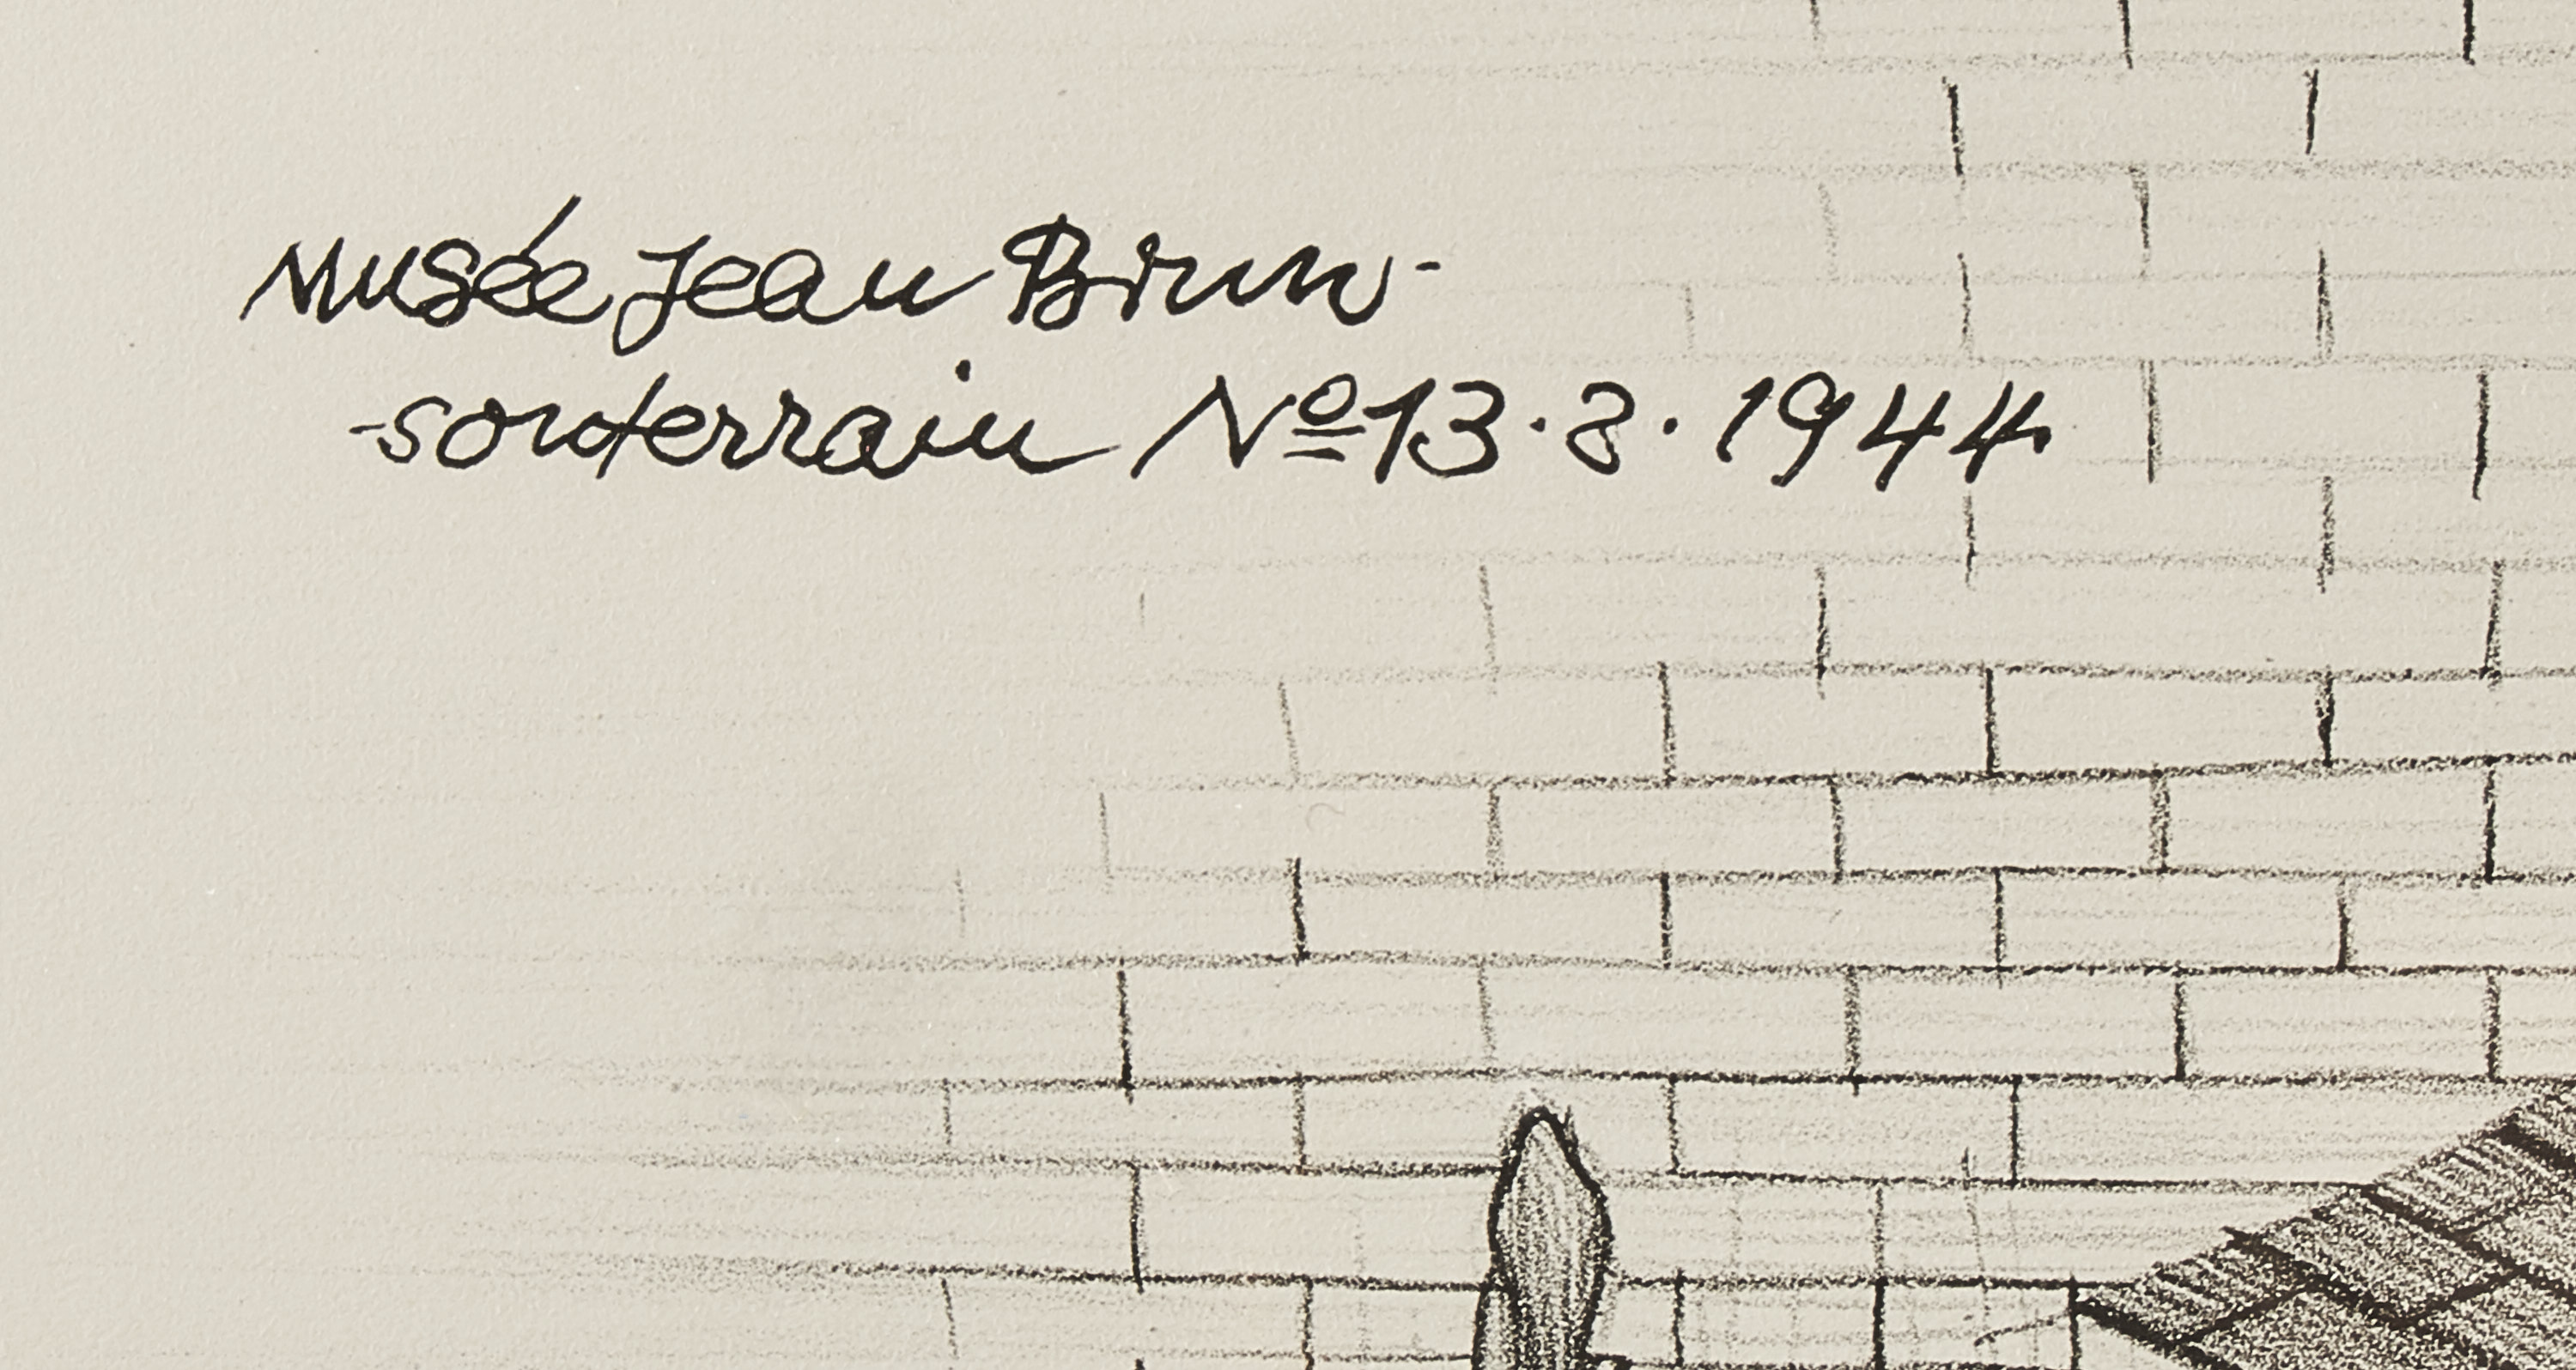 Musée Jean Brun-
-souterrain Nº13·8·1944